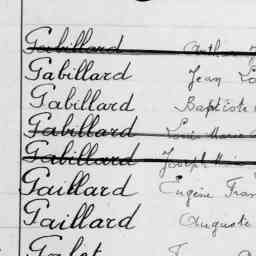 Gabillard
Gabillard Jean
Gabillard Baptiste
Gabillard Louis Marie
Gabillard Joseph Marie
Gaillard Eugène
Gaillard Auguste